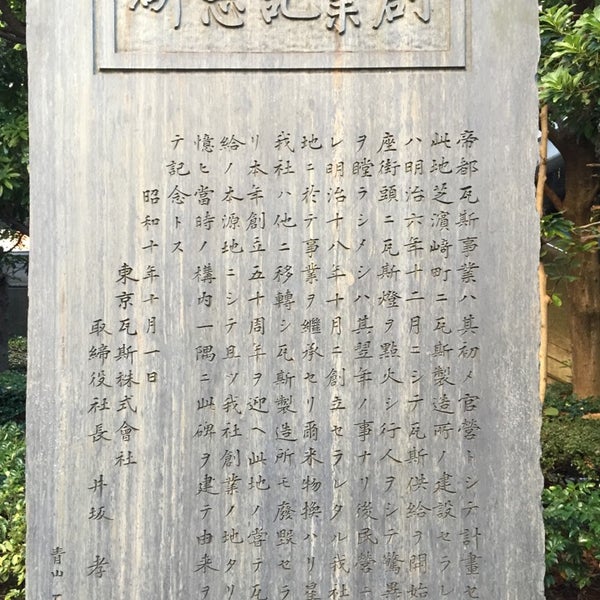 創業記念碑
帝都瓦斯事業ハ其初メ官營トシテ計畫セ
此地芝濱崎町ニ瓦斯製造所ノ建設セラレ
ハ明治六年十二月ニシテ瓦斯供給ヲ開始
座街頭ニ瓦斯燈ヲ點火シ行人ヲシテ驚異
ヲ瞠ラシメシハ其翌年ノ事ナリ後民營ニ
レ明治十八年十月ニ創立セラレタル我社
地ニ於テ事業ヲ継承セリ爾来物換ハリ星
我社ハ他ニ移轉シ瓦斯製造所モ廢毀セラ
リ本年創立五十周年ヲ迎ヘ此地ノ嘗テ瓦
給ノ本源地ニシテ且ツ我社創業ノ地タリ
憶ヒ當時ノ構内一隅ニ此碑ヲ建テ由来ヲ
テ記念トス
昭和十年十月一日
東京瓦斯株式會社
取締役社長 井坂 孝
青山